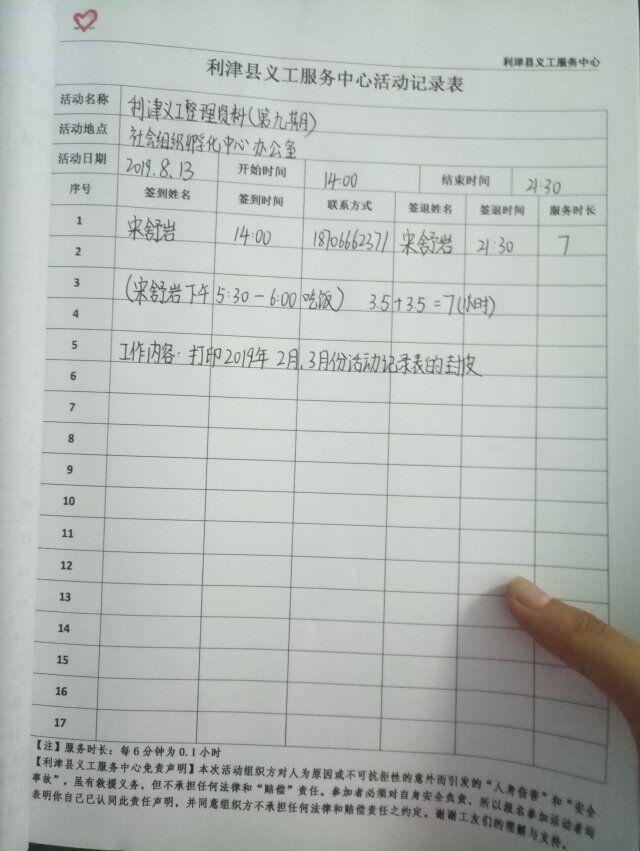 利津县义工服务中心
利津县义工服务中心活动记录表
活动名称 利津义工整理资料(第九期)
活动地点 社会组织孵化中心办公室
活动日期 2019.8.13 开始时间 14:00 结束时间 21:30
序号 签到姓名 签到时间 联系方式 签退姓名 签退时间 服务时长
1 宋舒岩 14:00 18706662371 宋舒岩 21:30 7
2
3 (宋舒岩下午5:30-6:00吃饭) 3.5+3.5=7(小时)
4
5 工作内容:打印2019年2月、3月份活动记录表的封皮
6
7
8
9
10
11
12
13
14
15
16
17
【注】服务时长:每6分钟为0.1小时
【利津县义工服务中心免责声明】本次活动组织方对人为原因或不可抗拒性的意外而引发的“人身伤害”和“安全
事故”,虽有救援义务,但不承担任何法律和“赔偿”责任。参加者必须对自身安全负责,所以报名参加活动者均
表明你自己已认同此责任声明,并同意组织方不承担任何法律和赔偿责任之约定。谢谢工友们的理解与支持。